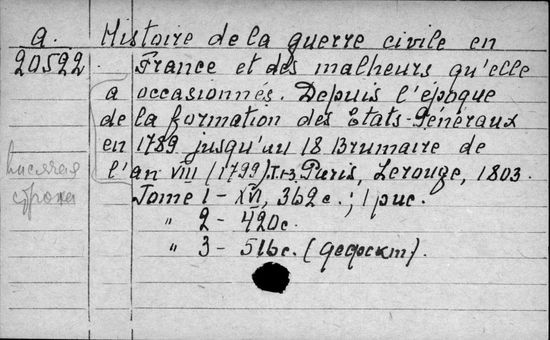 a. Histoire de la guerre civile en
20592 France et des malheurs qu'elle
a occasionnés. Depuis l'époque
de la formation des Etats-Généraux
en 1789 jusqu'au 18 Brumaire de
l'an VIII (1799). T. 1-3 Paris, Lerouge, 1803.
висячая
строка
Tome 1 - XVI, 362 с.; 1 рис.
" 2 - 420с.
" 3 - 516с. (дефектн).